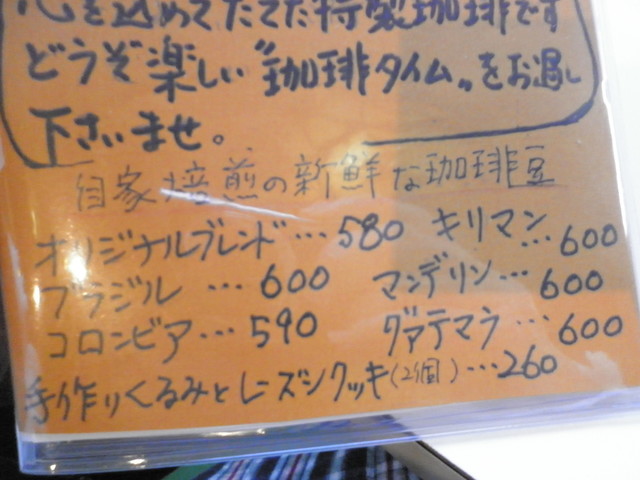 心を込めてたてた特製珈琲です
どうぞ楽しい"珈琲タイム"をお過し
下さいませ。
自家焙煎の新鮮な珈琲豆
オリジナルブレンド…580 キリマン…600
ブラジル…600 マンデリン…600
コロンビア…590 グァテマラ…600
手作りくるみとレーズンクッキ(2個)…260